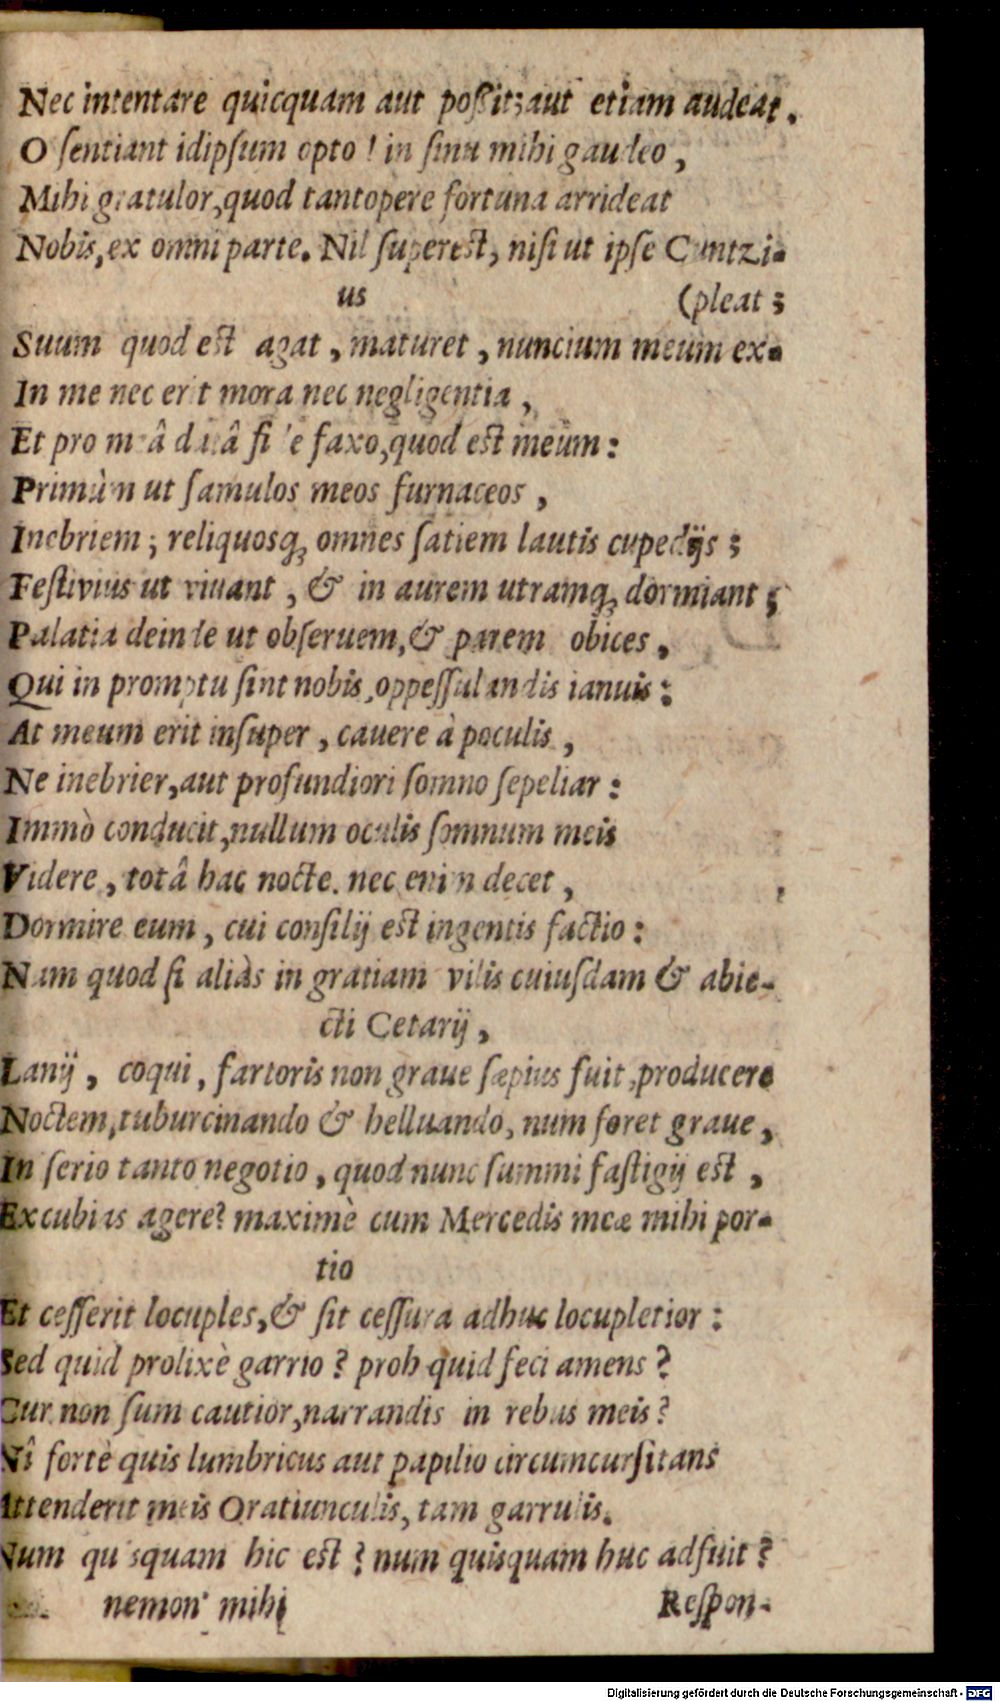 Nec intentare quicquam aut poſſit; aut etiam audeat.
O ſentiant idipſum opto! in ſinu mihi gaudeo,
Mihi gratulor, quod tantopere fortuna arrideat
Nobis, ex omni parte. Nil ſupereſt, niſi ut ipſe Cuntzi-
us (pleat;
Suum quod eſt agat, maturet, nuncium meum ex-
In me nec erit mora nec negligentia,
Et pro meâ datâ fide faxo, quod eſt meum:
Primùm ut famulos meos furnaceos,
Inebriem; reliquosq; omnes ſatiem lautis cupedijs;
Feſtivius ut vivant, & in aurem utramq; dormiant;
Palatia deinde ut obſeruem, & parem obices,
Qui in promptu ſint nobis, oppeſſulandis ianuis:
At meum erit inſuper, cauere à poculis,
Ne inebrier, aut profundiori ſomno ſepeliar:
Immò conducit, nullum oculis ſomnum meis
Videre, totâ hac nocte. nec enim decet,
Dormire eum, cui conſilij eſt ingentis factio:
Nam quod ſi aliàs in gratiam vilis cuiuſdam & abie-
cti Cetarij,
Lanij, coqui, fartoris non graue ſæpius fuit, producere
Noctem, tuburcinando & helluando, num foret graue,
In ſerio tanto negotio, quod nunc ſummi faſtigij eſt,
Excubias agere? maximè cum Mercedis meæ mihi por-
tio
Et ceſſerit locuples, & ſit ceſſura adhuc locupletior:
Sed quid prolixè garrio? proh quid feci amens?
Cur non ſum cautior, narrandis in rebus meis?
Nî fortè quis lumbricus aut papilio circumcurſitans
Attenderit meis Oratiunculis, tam garrulis.
Num quisquam hic eſt? num quisquam huc adfuit?
nemon' mihi Reſpon-
Digitalisierung gefördert durch die Deutsche Forschungsgemeinschaft - DFG